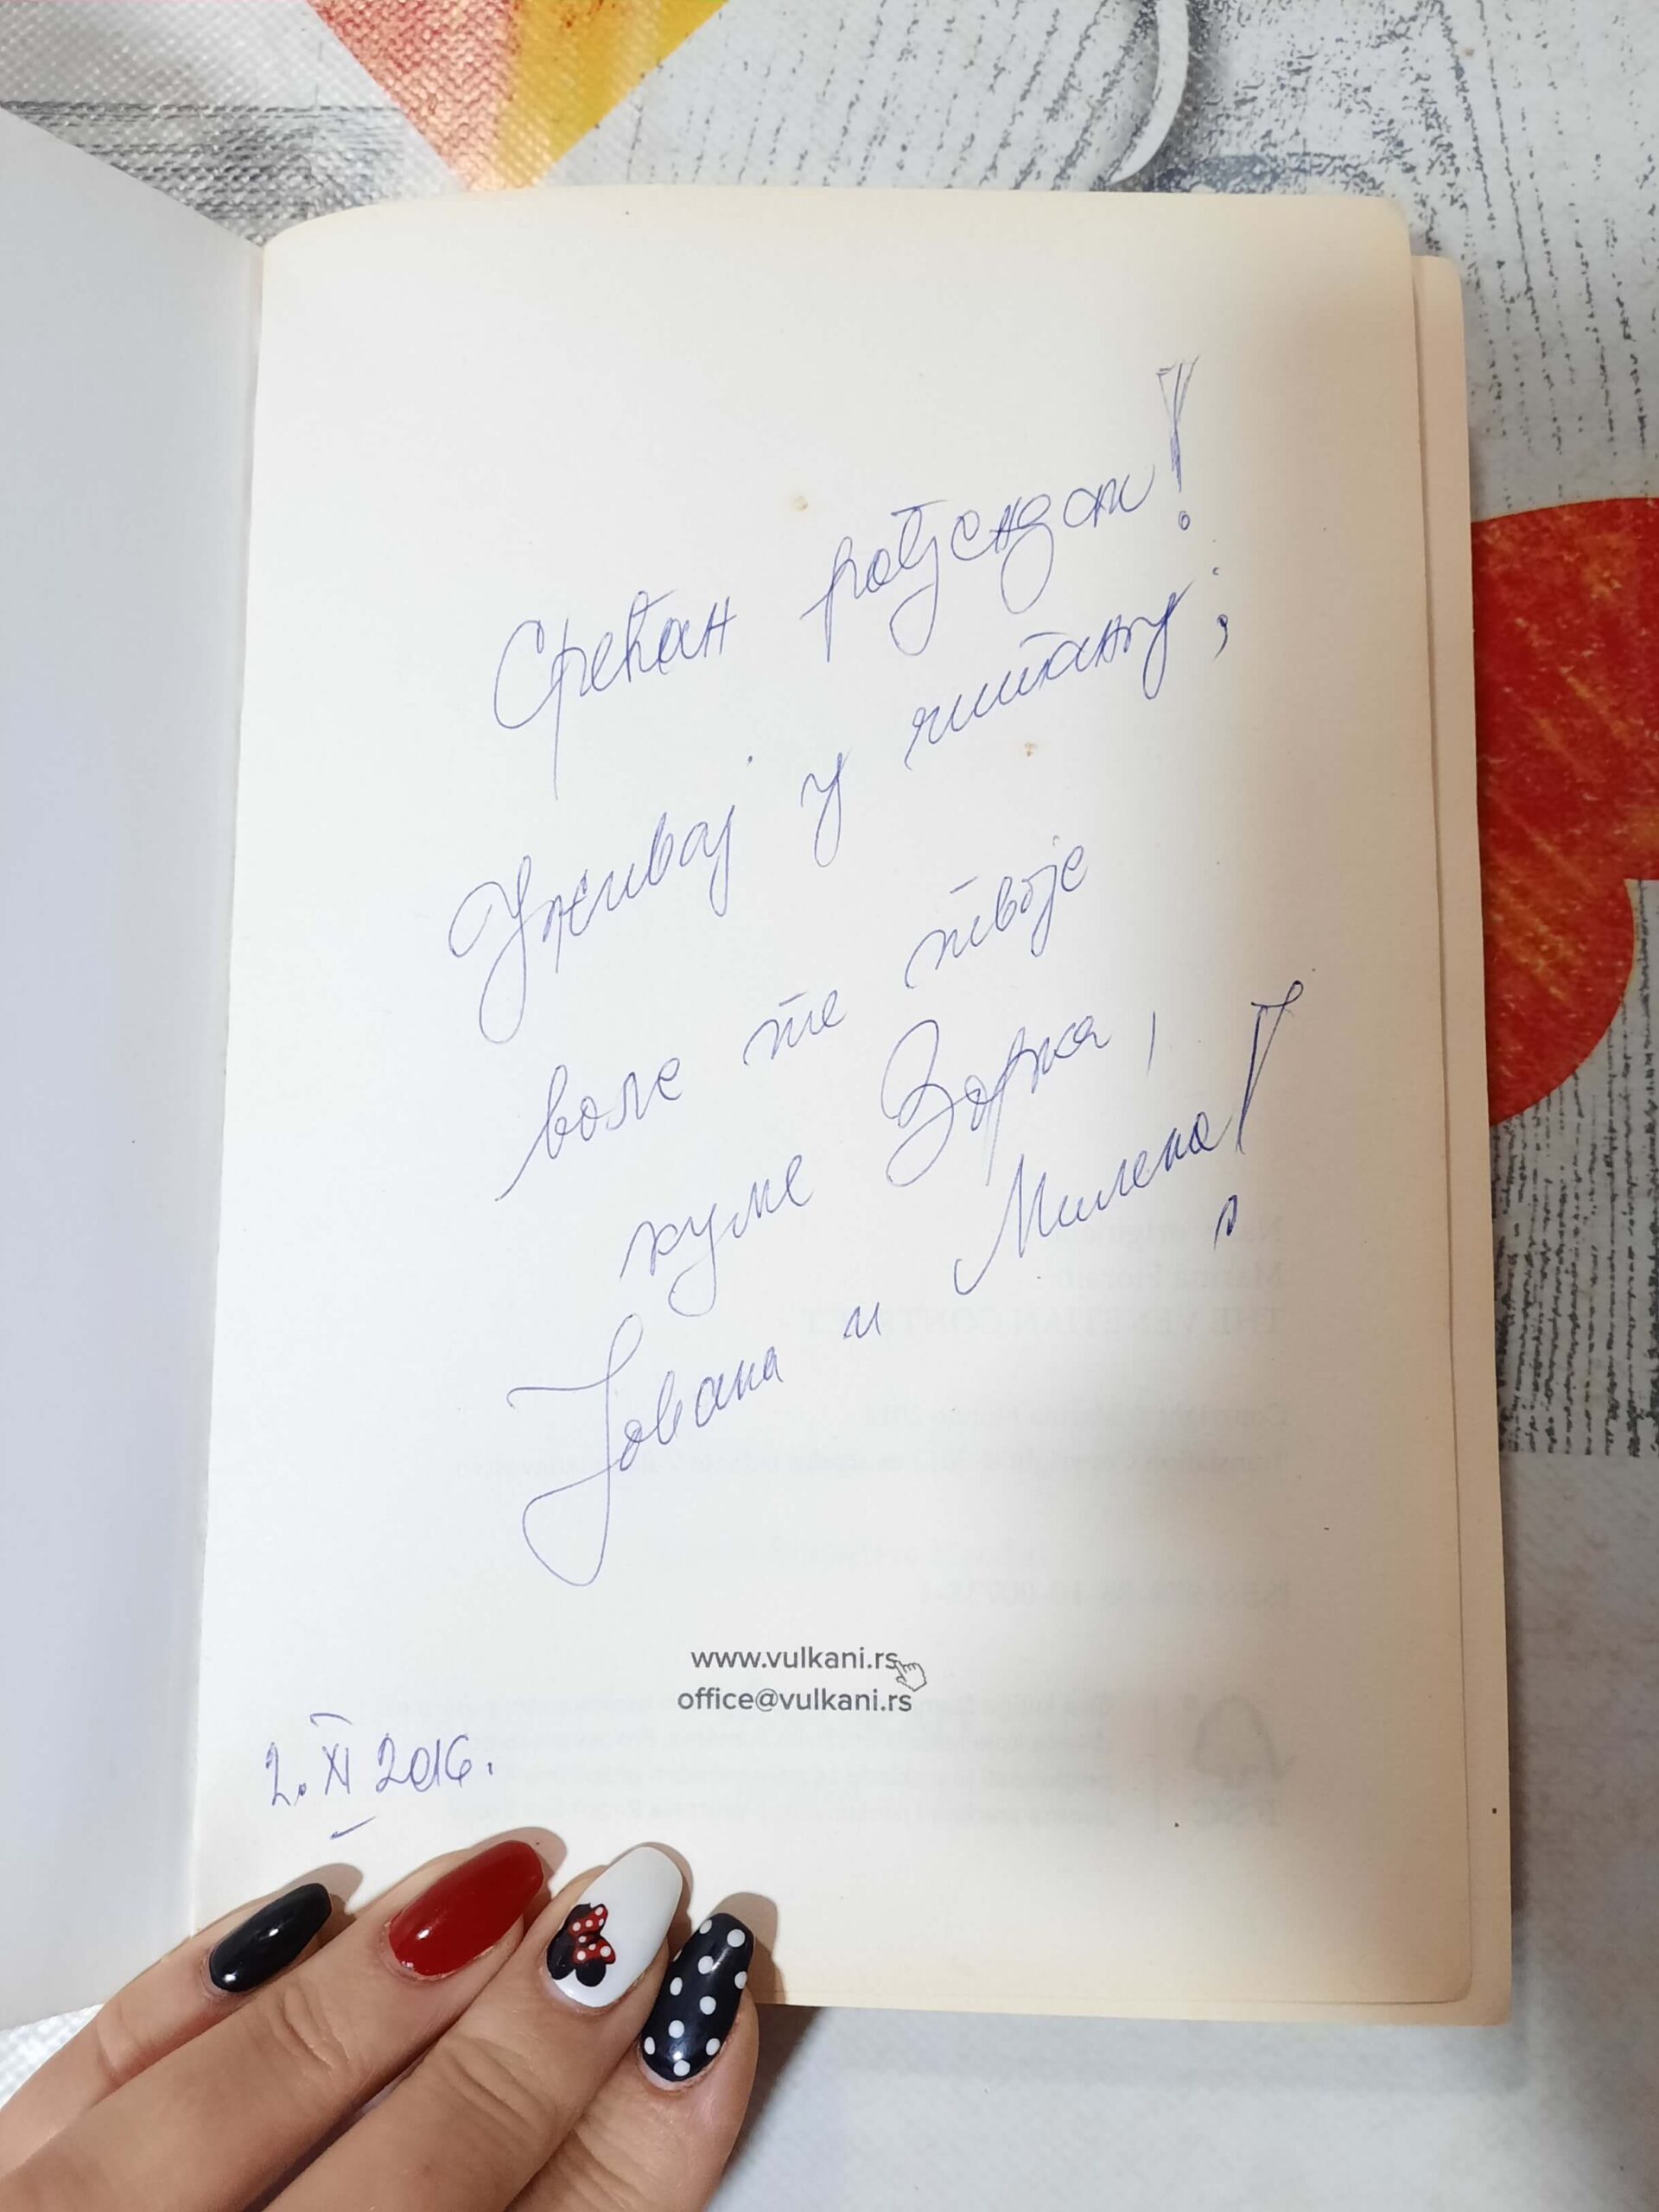 Срећан рођендан!
Уживај у читању;
воле те твоје
куме Зорка,
Јована и Милена!
www.vulkani.rs
office@vulkani.rs
2. XI 2016.
THE VENETIAN CONTRACT